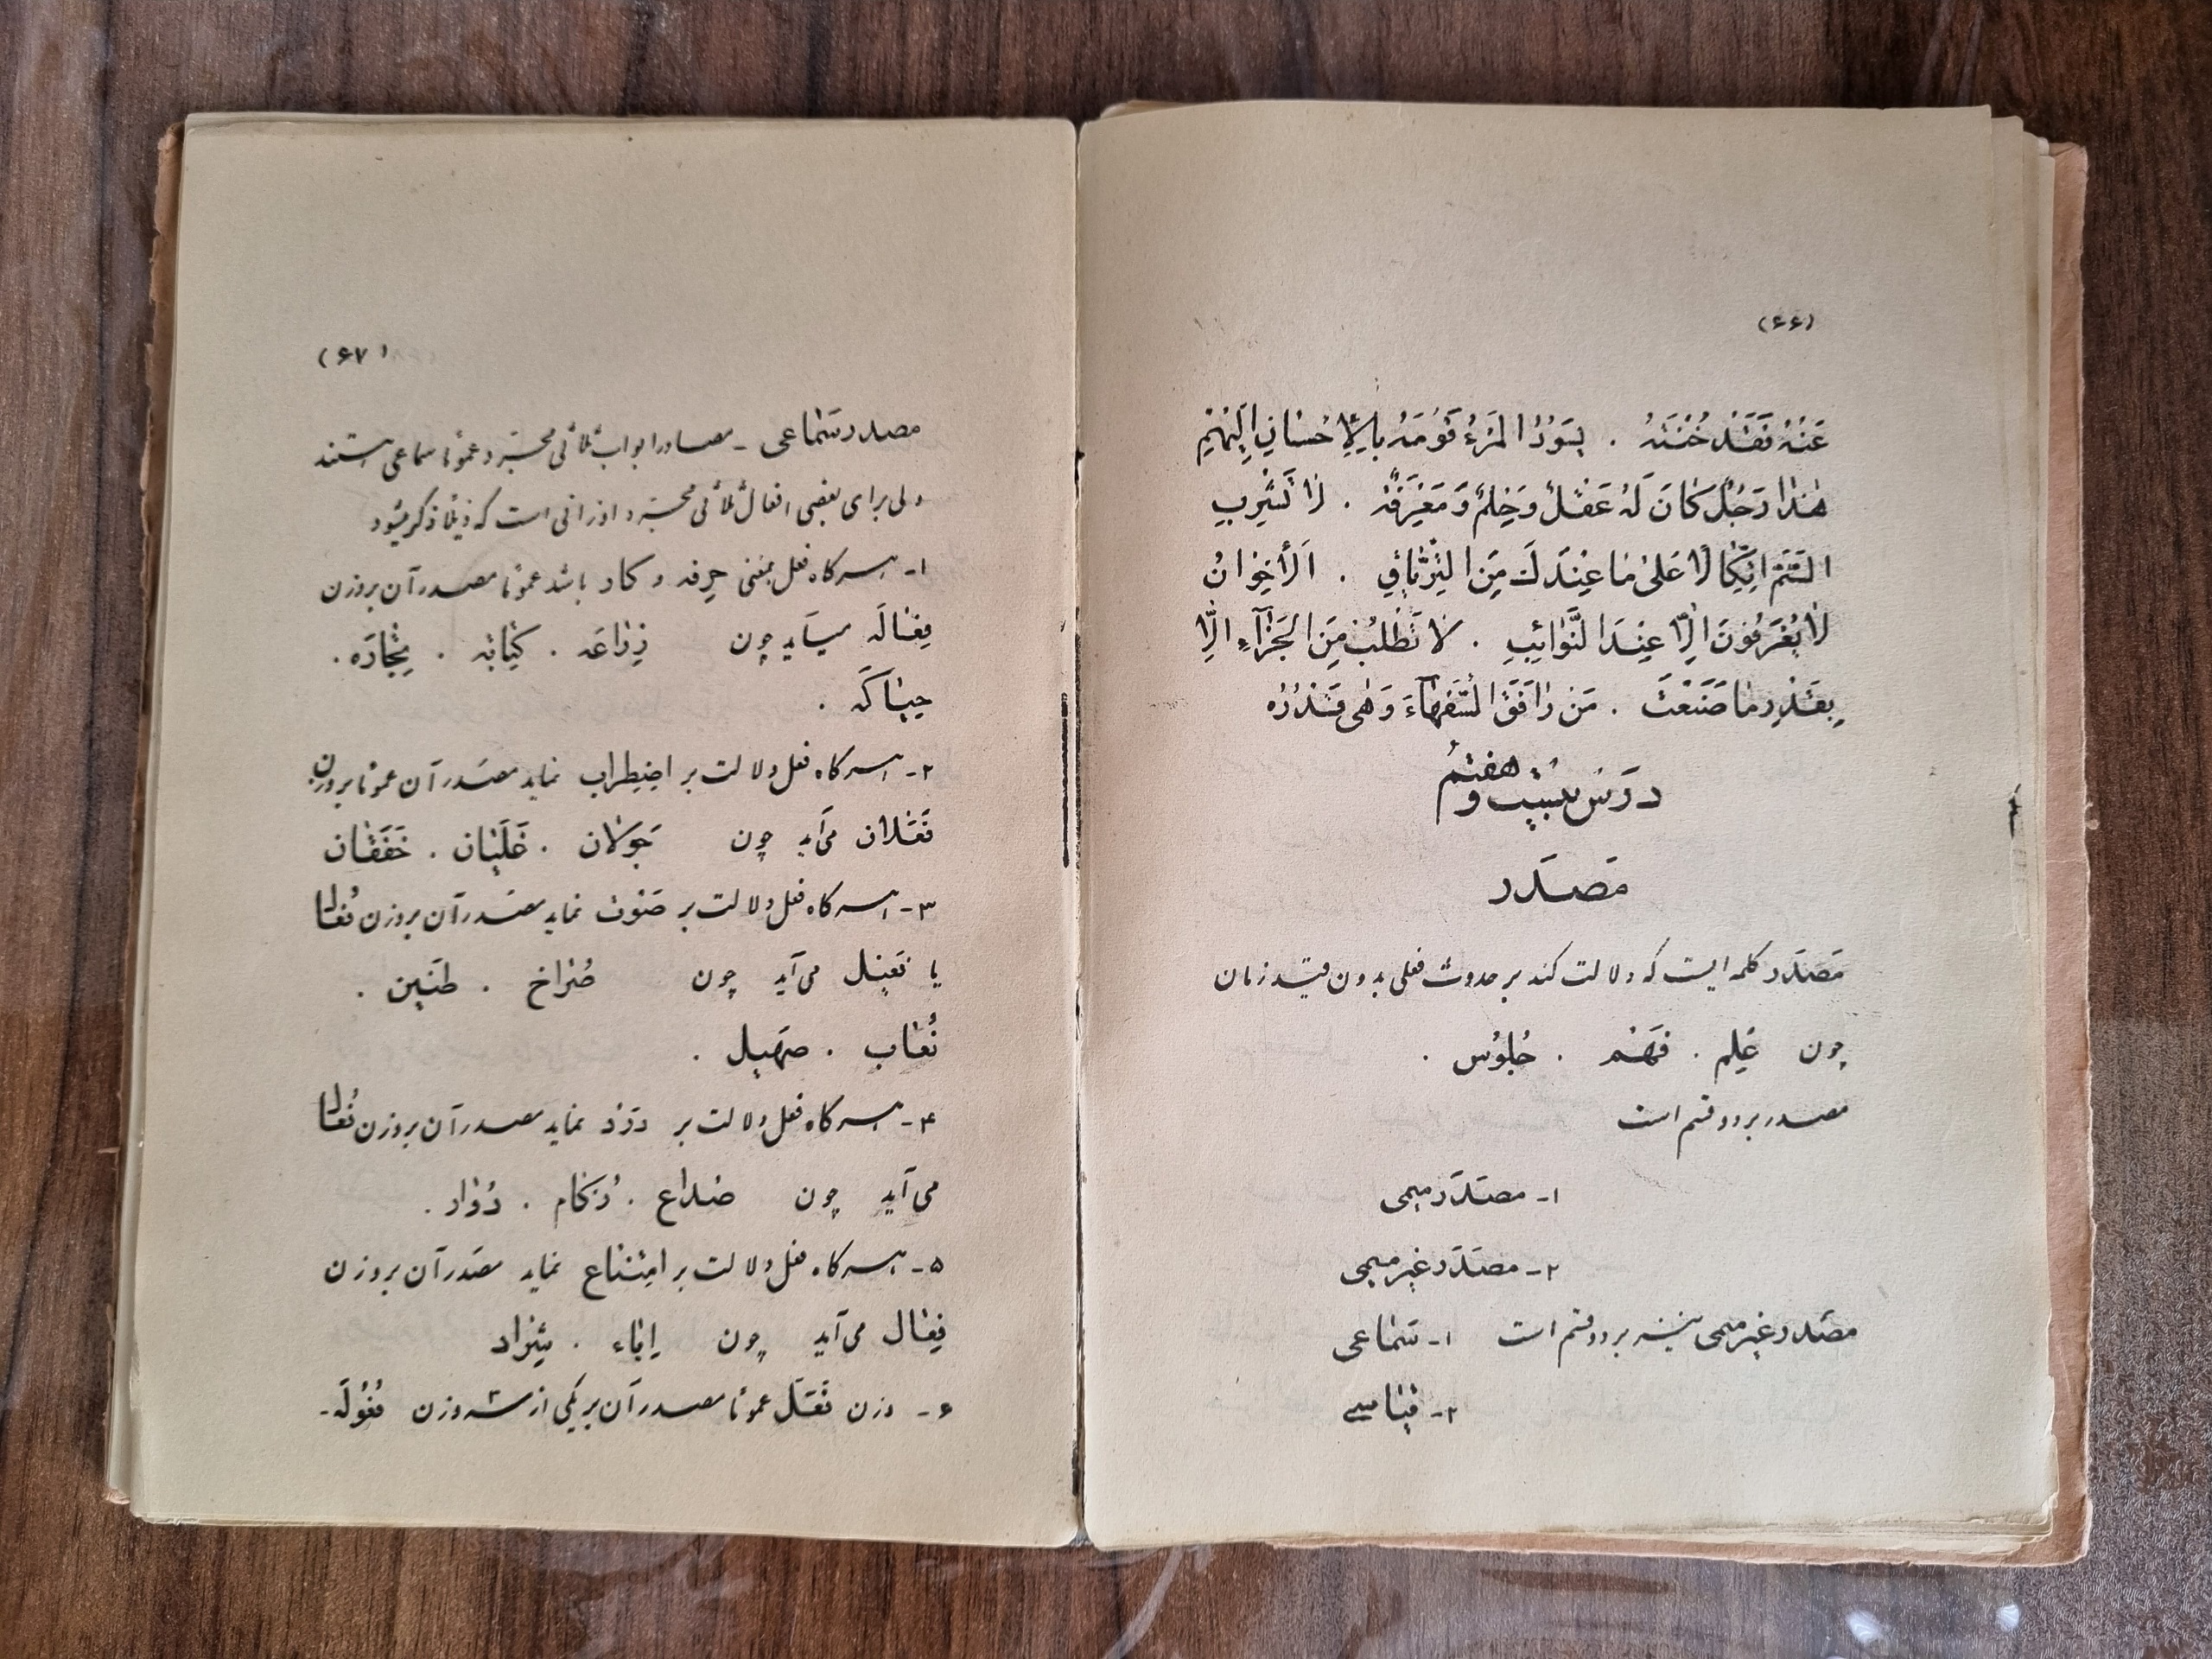 (۶۶)
عَنْهُ فَقَدْ خُنْتَهُ . يَسُودُ الْمَرْءُ قَوْمَهُ بِالْاِحْسٰانِ اِلَيْهِمْ
هٰذا رَجُلٌ كٰانَ لَهُ عَقْلٌ وَحِلْمٌ وَ مَعْرِفَةٌ . لٰا تَشْرَبِ
السَّمَّ اِتِّكٰالًا عَلىٰ مٰا عِنْدَكَ مِنَ التِّرْيٰاقِ . اَلْأِخْوٰانُ
لٰا يُعْرَفُونَ اِلّٰا عِنْدَ النَّوٰائِبِ . لا تَطْلُبْ مِنَ الْجَزٰآءِ اِلّٰا
بِقَدْرِ مٰا صَنَعْتَ . مَنْ رٰافَقَ السُّفَهٰآءَ وَهٰى قَدْرُهُ
دَرسُ بیست و هفتم
مَصدَر
مَصدَر کلمه ایست که دلالت کند بر حدوث فعلی بدون قید زمان
چون عِلم . فَهْم . جُلوُس .
مصدر بر دو قسم است
۱- مصدَر میمی
۲- مصدَر غیر میمی
مصدر غیر میمی نیز بر دو قسم است ۱- سَمٰاعی
۲- قیٰاسی
(۶۷)
مصدر سَمٰاعی - مصادر ابواب ثلاثی مجرّد عموًما سماعی هستند
ولی برای بعضی افعال ثلاثی مجرّد اوزانی است که ذیلًا ذکر میشود
۱- هر گاه فعل بمعنی حِرفه و کار باشد عموًما مصدر آن بروزن
فِعٰالَه میآید چون زِرٰاعَه . کِتٰابَه . تِجٰارَه .
حِیٰاکَه .
۲- هر گاه فعل دلالت بر اِضطِراب نماید مصدر آن عموًما بروزن
فَعَلان می‌آید چون جَوَلان . غَلَیٰان . خَفَقٰان
۳- هر گاه فعل دلالت بر صَوْت نماید مصدر آن بروزن فُعٰال
یا فَعیل می‌آید چون صُرٰاخ . طَنین .
نُعٰاب . صَهیل .
۴- هر گاه فعل دلالت بر دَرْد نماید مصدر آن بروزن فُعٰال
می‌آید چون صُداع . زُکٰام . دُوٰار .
۵- هر گاه فعل دلالت بر اِمتِنٰاع نماید مصدر آن بروزن
فِعٰال می‌آید چون اِبٰاء . شِرٰاد
۶- وزن فَعُلَ عموًما مصدر آن بر یکی از سه وزن فُعُولَه-